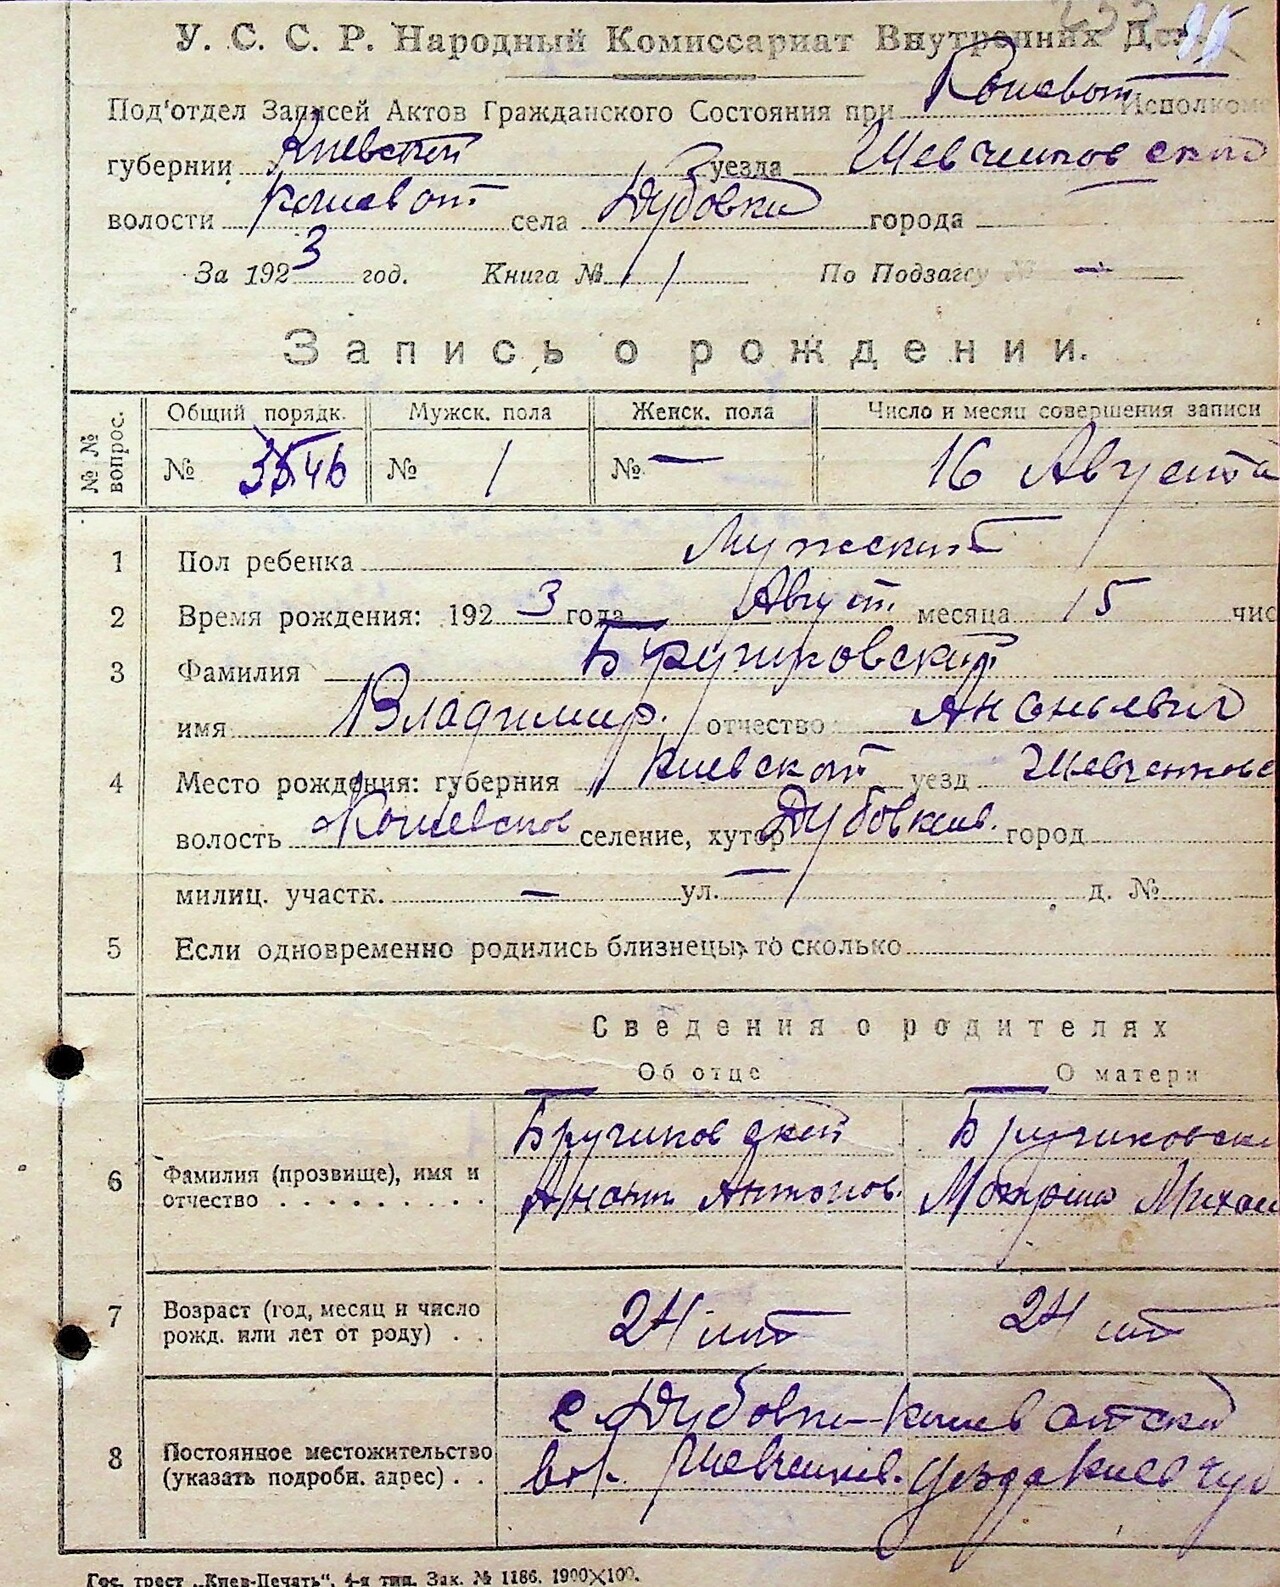 У. С. С. Р. Народный Комиссариат Внутренних Де
Под'отдел Записей Актов Гражданского Состояния при Кошеват Исполкоме
губернии Киевской уезда Шевченковский
волости Кошеват. села Дубовки города
За 1923 год. Книга № 1 По Подзагсу № —
Запись о рождении.
№ № вопрос. Общий порядк. Мужск. пола Женск. пола Число и месяц совершения записи
№ 46 № 1 № — 16 Августа
1 Пол ребенка Мужский
2 Время рождения: 1923 года Август. месяца 15 чис
3 Фамилия Бручиковский
имя Владимир. отчество Ананьевич
4 Место рождения: губерния Киевской уезд Шевченковс
волость селение, хутор город
милиц. участк. — ул. — д. №
5 Если одновременно родились близнецы, то сколько
Сведения о родителях
Об отце О матери
Бручиковский Бручиковска
6 Фамилия (прозвище), имя и
отчество . . . . . . . . . Антонов. Михай
7 Возраст (год, месяц и число
рожд. или лет от роду) . . 24 лет 24 лет
с. Дубовки Кошеватской
8 Постоянное местожительство
(указать подробн. адрес) . . вол. Шевченков. уезда Киев губ
Гос. трест „Киев-Печать“, 4-я тип. Зак. № 1186. 1900×100.